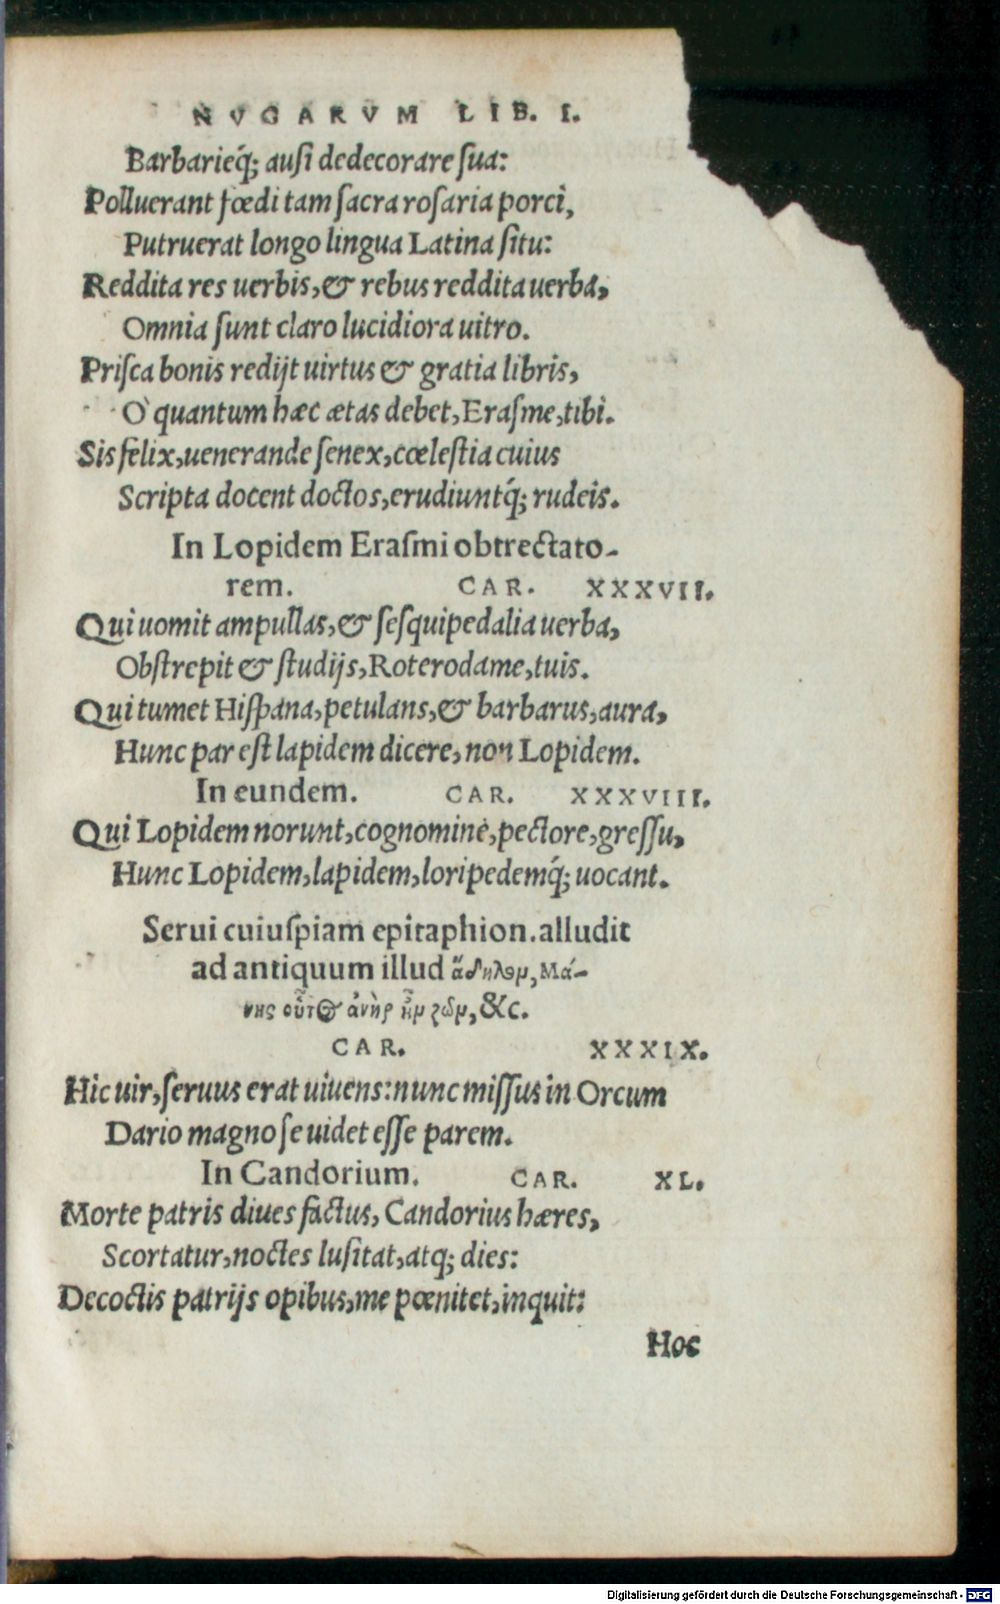 NVGARVM LIB. I.
Barbarieq́; ausi dedecorare sua:
Polluerant fœdi tam sacra rosaria porci,
Putruerat longo lingua Latina situ:
Reddita res uerbis, & rebus reddita uerba,
Omnia sunt claro lucidiora uitro.
Prisca bonis redijt uirtus & gratia libris,
O' quantum hæc ætas debet, Erasme, tibi.
Sis felix, uenerande senex, cœlestia cuius
Scripta docent doctos, erudiuntq́; rudeis.
In Lopidem Erasmi obtrectato-
rem. CAR. XXXVII.
Qui uomit ampullas, & sesquipedalia uerba,
Obstrepit & studijs, Roterodame, tuis.
Qui tumet Hispana, petulans, & barbarus, aura,
Hunc par est lapidem dicere, non Lopidem.
In eundem. CAR. XXXVIII.
Qui Lopidem norunt, cognomine, pectore, gressu,
Hunc Lopidem, lapidem, loripedemq́; uocant.
Serui cuiuspiam epitaphion. alludit
ad antiquum illud ἄδηλομ, Μά-
νης οὗτος ἀνὴρ ἦμ ζῶμ, &c.
CAR. XXXIX.
Hic uir, seruus erat uiuens: nunc missus in Orcum
Dario magno se uidet esse parem.
In Candorium. CAR. XL.
Morte patris diues factus, Candorius hæres,
Scortatur, noctes lusitat, atq; dies:
Decoctis patrijs opibus, me pœnitet, inquit:
Hoc
Digitalisierung gefördert durch die Deutsche Forschungsgemeinschaft - DFG